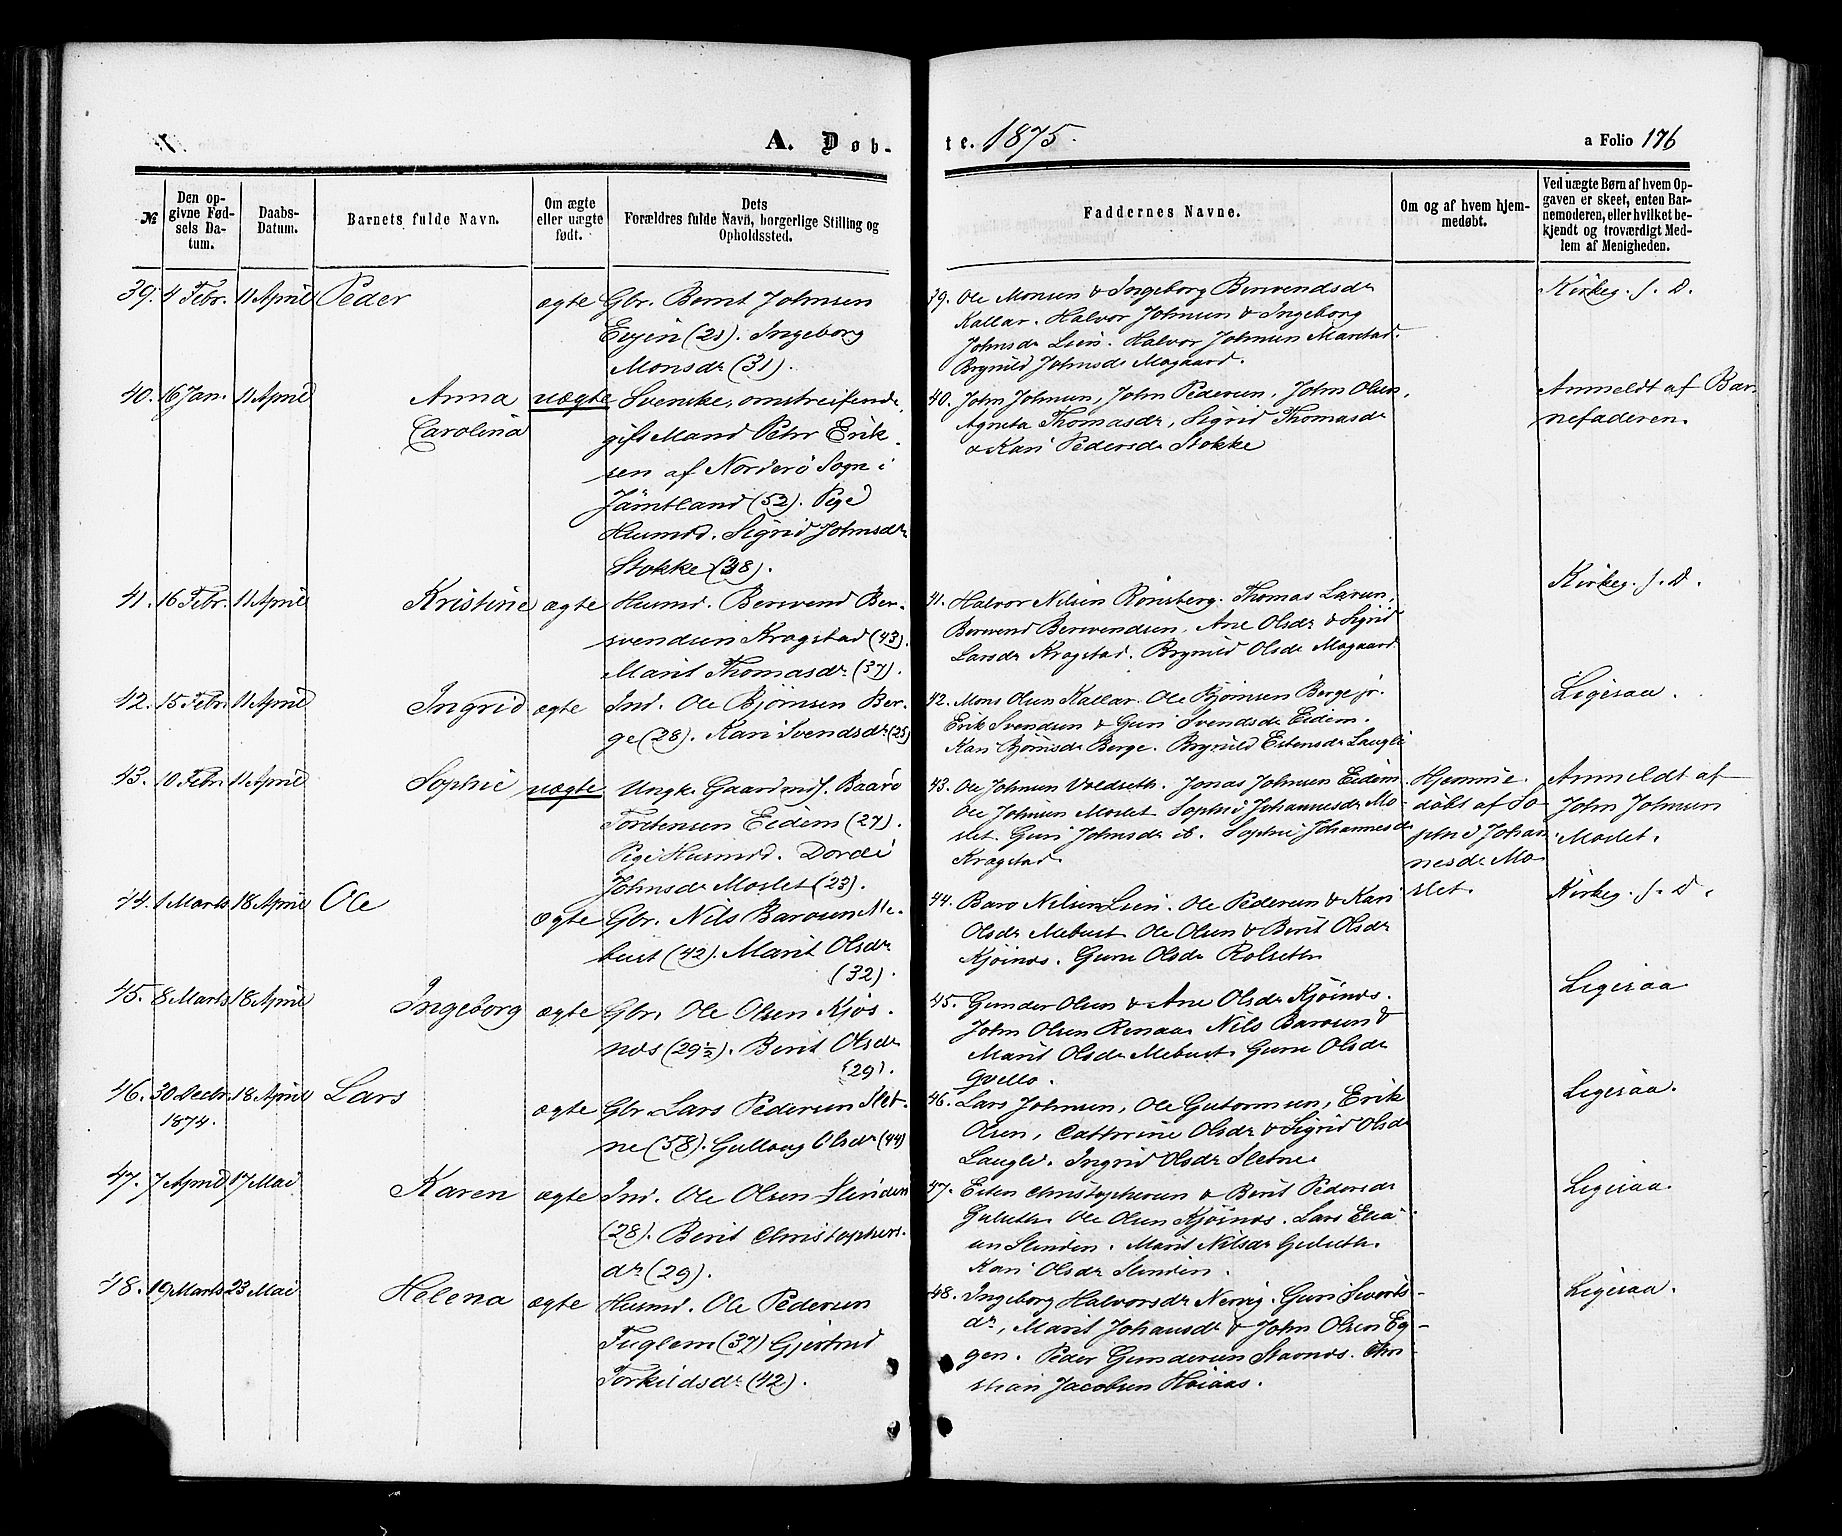 A. Døb-
te. 1875.
a Folio 176
№
Den op-
givne Fød-
sels Da-
tum.
Daabs-
Datum.
Barnets fulde Navn.
Om ægte
eller uægte
født.
Dets
Forældres fulde Navn, borgerlige Stilling og
Opholdssted.
Faddernes Navne.
Om og af hvem hjem-
medøbt.
Ved uægte Børn af hvem Op-
gaven er skeet, enten Bar-
nemoderen, eller hvilket be-
kjendt og troværdigt Med-
lem af Menigheden.
39. 4 Febr. 11 April Peder ægte Gbr. Bernt Johnsen
Evjen (21). Ingeborg
Monsdr (31).
39. Ole Monsen & Ingeborg Bersvendsdr
Kallar. Halvor Johnsen & Ingeborg
Johnsdr Lien. Halvor Johnsen Marstad.
Brynild Johnsdr Mogaard.
Kirkeg. f. D.
40. 16 Jan. 11 April Anna uægte Svenske, omstreifende,
Carolina gift Mand Pehr Erik-
sen af Norderö Sogn i
Jämtland (52). Pige
Husmd. Sigrid Johnsdr
Stokke (38).
40. John Johnsen, John Pedersen, John Olsen,
Agneta Thomasdr, Sigrid Thomasdr
& Kari Pedersdr Stokke
Anmeldt af Bar-
nefaderen.
41. 16 Febr. 11 April Kristine ægte Husmd. Bersvend Ber-
svendsen Kragstad (43).
Marit Thomasdr (37).
41. Halvor Nilsen Rönsberg. Thomas Larsen,
Bersvend Bersvendsen, Ane Olsdr & Sigrid
Larsdr Kragstad. Brynild Olsdr Mogaard
Kirkeg. f. D.
42. 15 Febr. 11 April Ingrid ægte Ind. Ole Bjørnsen Ber-
ge (28). Kari Svendsdr (25)
42. Mons Olsen Kallar. Ole Bjørnsen Berge jr.
Erik Svendsen & Guri Svendsdr Eidem.
Kari Bjørnsdr Berge. Brynild Estensdr Lauglo
Ligesaa.
43. 10 Febr. 11 April Sophie uægte Ungk. Gaardmd f. Baarø
Torstensen Eidem (27).
Pige Husmd. Dordi
Johnsdr Moslet (23).
43. Ole Johnsen Voldseth. Jonas Johnsen Eidem
Ole Johnsen Moslet. Sophie Johannesdr Mo-
slet. Guri Johnsdr ib. Sophie Johannesdr
Kragstad.
Hjemme-
døbt af So-
phie Johan-
nesdr Mo-
slet.
Anmeldt af
John Johnsen
Moslet.
44. 1 Marts 18 April Ole ægte Gbr. Nils Barosen Me-
bust (42). Marit Olsdr
(32).
44. Baro Nilsen Lien. Ole Pedersen & Kari
Olsdr Mebust. Ole Olsen & Berit Olsdr
Kjösnæs. Guru Olsdr Rolseth
Kirkeg. f. D.
45. 8 Marts 18 April Ingeborg ægte Gbr. Ole Olsen Kjøs-
næs (29½). Berit Olsdr
(29).
45. Gunder Olsen & Ane Olsdr Kjösnæs.
John Olsen Renaa. Nils Barosen &
Marit Olsdr Mebust. Guru Olsdr
Qvello.
Ligesaa
46. 30 Decbr. 18 April Lars ægte Gbr. Lars Pedersen Slet-
1874. ne (58). Gullaug Olsdr (44)
46. Lars Johnsen, Ole Guttormsen, Erik
Olsen, Cathrine Olsdr & Sigrid Olsdr
Lauglo. Ingrid Olsdr Sletne
Ligesaa.
47. 7 April 17 Mai Karen ægte Ind. Ole Olsen Slinden
(28). Berit Christophers-
dr (29).
47. Esten Christophersen & Berit Pedersdr
Gulseth. Ole Olsen Kjösnæs. Lars Elia-
sen Slinden. Marit Nilsdr Gulseth.
Kari Olsdr Slinden.
Ligesaa.
48. 19 Marts 23 Mai Helena ægte Husmd. Ole Pedersen
Fuglem (37) Gjertrud
Torkildsdr (42).
48. Ingeborg Halvorsdr Nervig. Guri Sivarts-
dr, Marit Johansdr & John Olsen Eg-
gen. Peder Gundersen Stavnæs. Chri-
stian Jacobsen Høiaas.
Ligesaa.